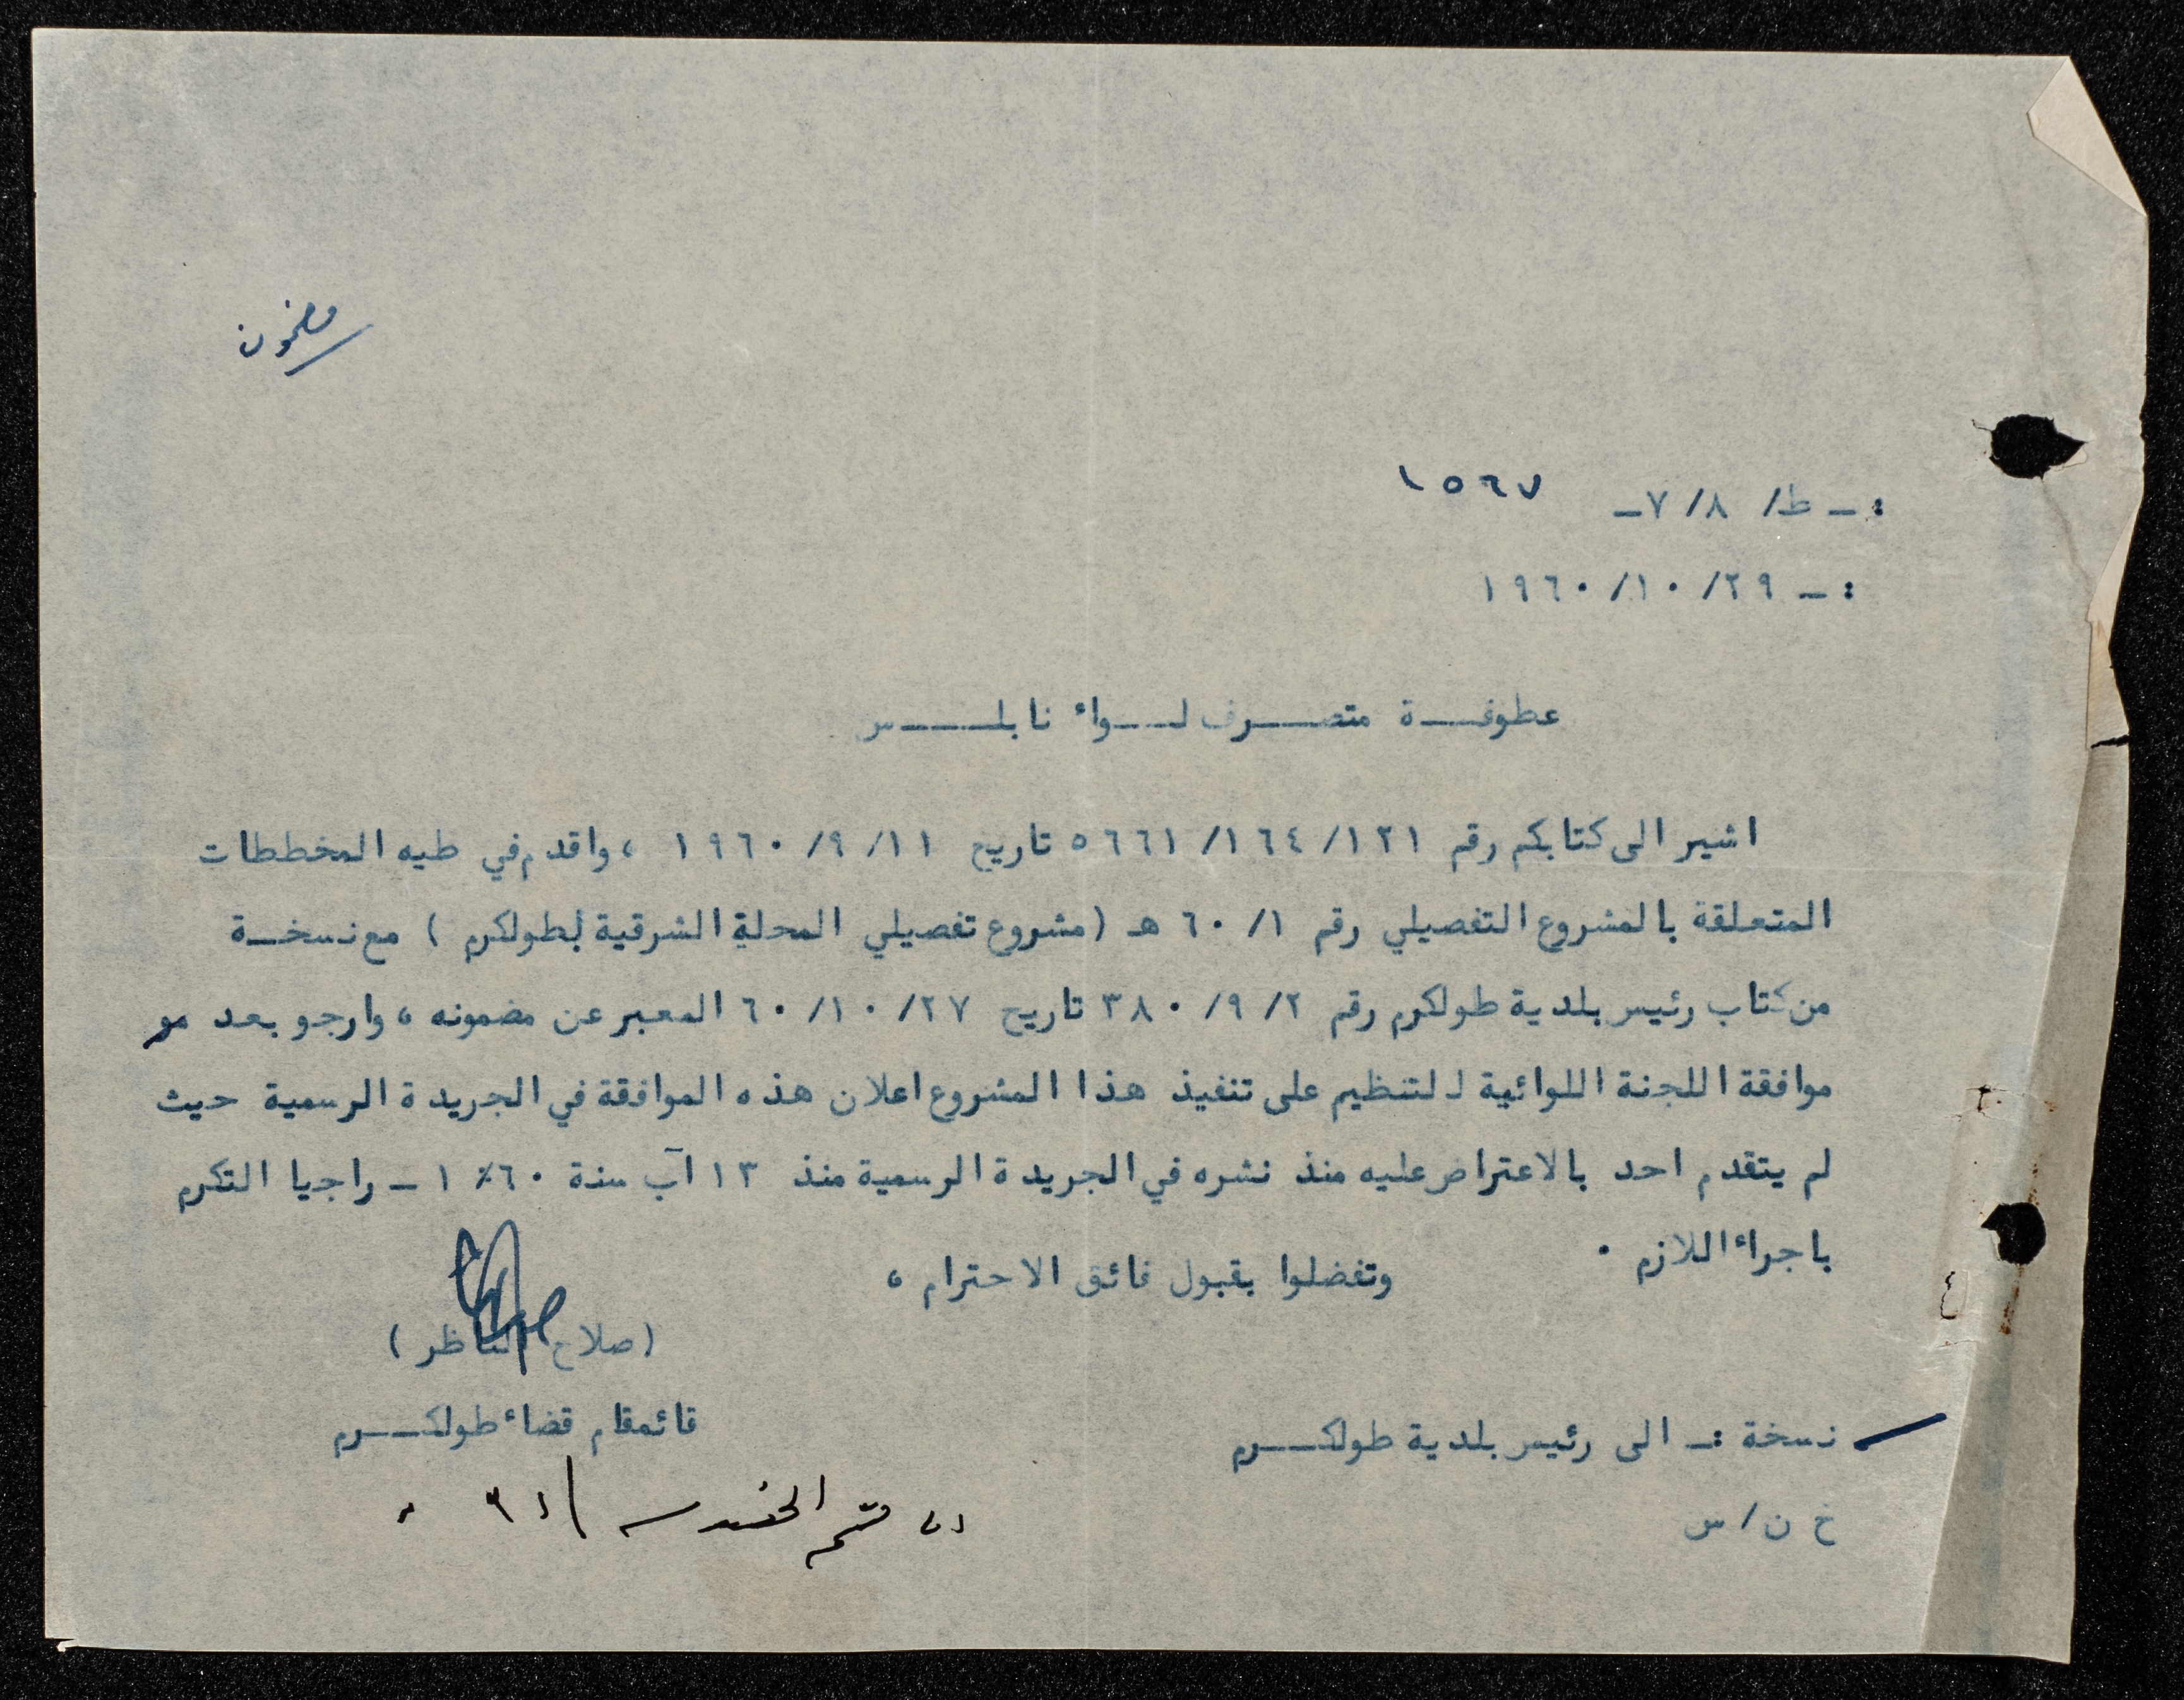 مضمون
:ـ ط/ ٨/ ٧ـ ١٥٦٧
:ـ ٢٩/ ١٠/ ١٩٦٠
عطوفـــة متصـــرف لـــواء نابلـــس
اشير الى كتابكم رقم ١٢١/ ١٦٤/ ٥٦٦١ تاريخ ١١/ ٩/ ١٩٦٠ ، واقدم في طيه المخططات
المتعلقة بالمشروع التفصيلي رقم ١/ ٦٠ هـ (مشروع تفصيلي المحلة الشرقية لطولكرم ) مع نسخـة
من كتاب رئيس بلدية طولكرم رقم ٢/ ٩/ ٣٨٠ تاريخ ٢٧/ ١٠/ ٦٠ المعبر عن مضمونه ، وارجو بعد مو
موافقة اللجنة اللوائية للتنظيم على تنفيذ هذا المشروع اعلان هذه الموافقة في الجريدة الرسمية حيث
لم يتقدم احد بالاعتراض عليه منذ نشره في الجريدة الرسمية منذ ١٣ آب سنة ١٪٦٠ ـ راجيا التكرم
باجراء اللازم ٠
وتفضلوا بقبول فائق الاحترام ،
(صلاح الناظر )
قائمقام قضاء طولكـــرم
نسخة :ـ الى رئيس بلدية طولكـــرم
قسم الهندسه
خ ن / س
٤